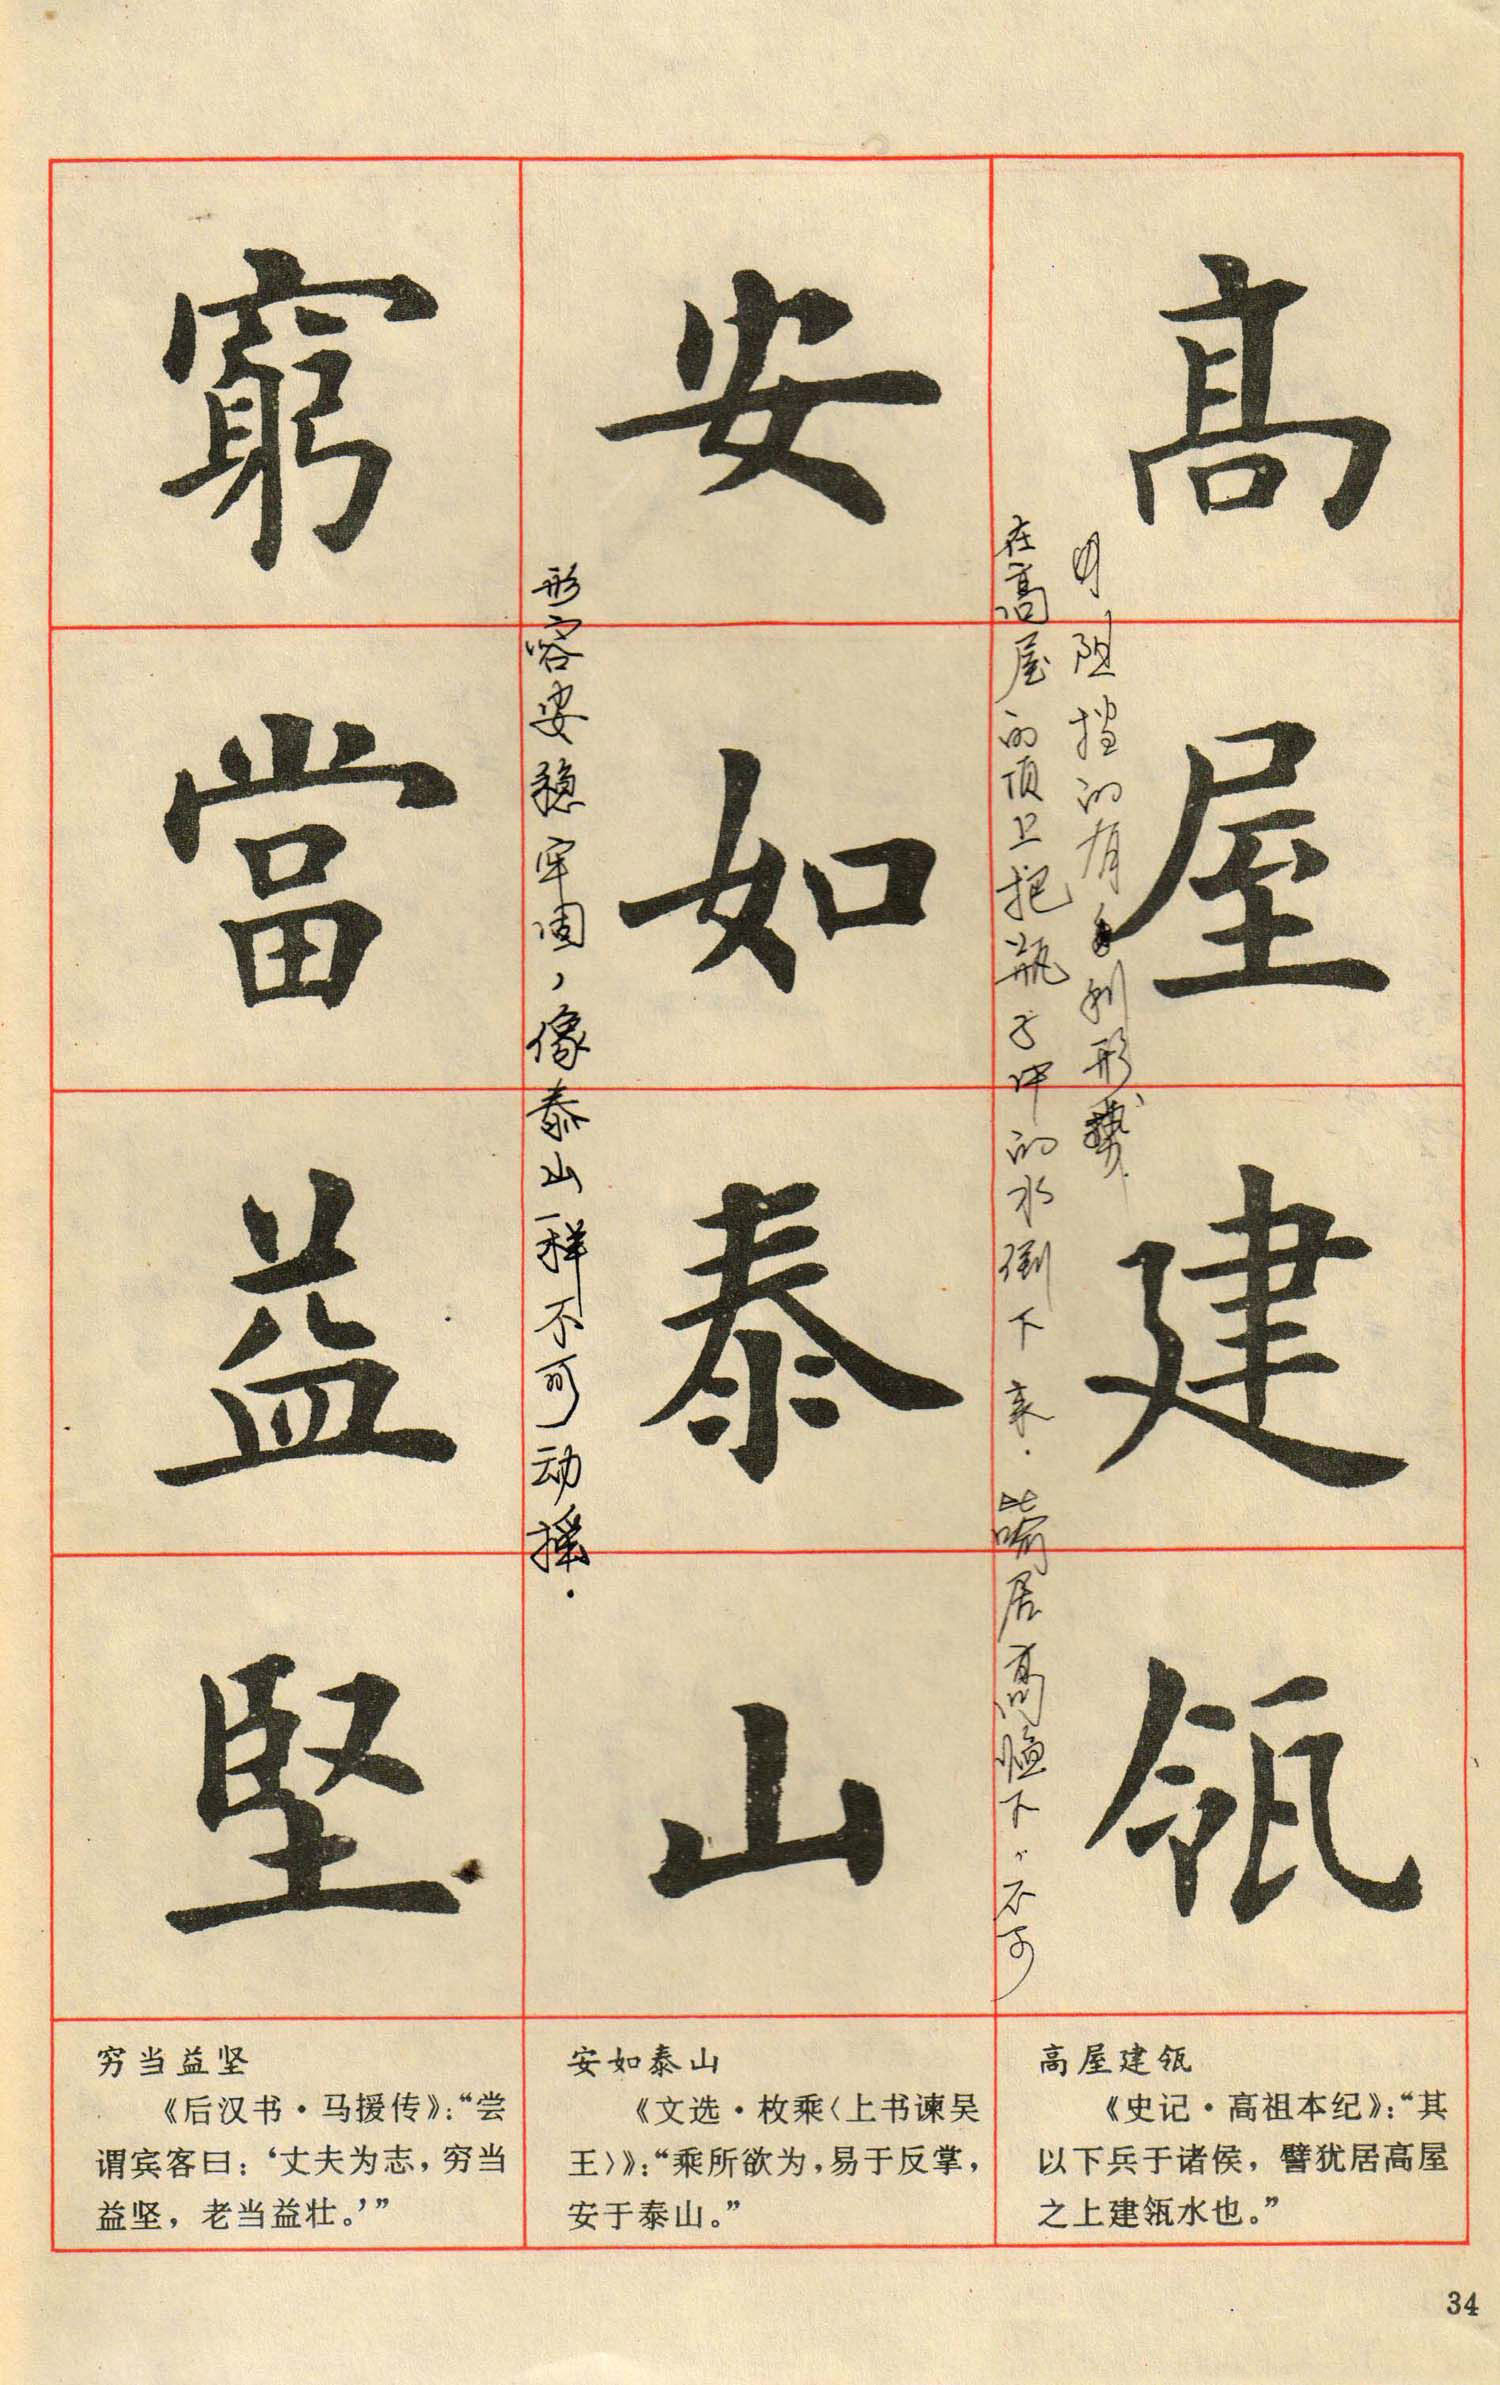 高屋建瓴
在高屋的顶上把瓶子中的水倒下来.比喻居高临下,不可
阻挡的有利形势.
安如泰山
形容安稳牢固,像泰山一样不可动摇.
窮當益堅
高屋建瓴
《史记·高祖本纪》:“其
以下兵于诸侯，譬犹居高屋
之上建瓴水也。”
安如泰山
《文选·枚乘〈上书谏吴
王〉》:“乘所欲为,易于反掌,
安于泰山。”
穷当益坚
《后汉书·马援传》:“尝
谓宾客曰：‘丈夫为志，穷当
益坚，老当益壮。’”
34